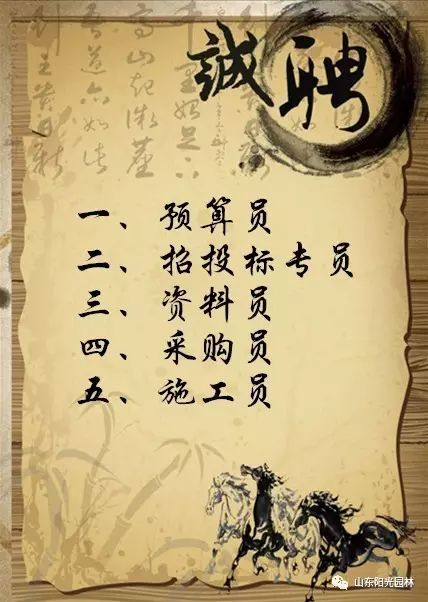 誠聘
一、预算员
二、招投标专员
三、资料员
四、采购员
五、施工员
山东阳光园林